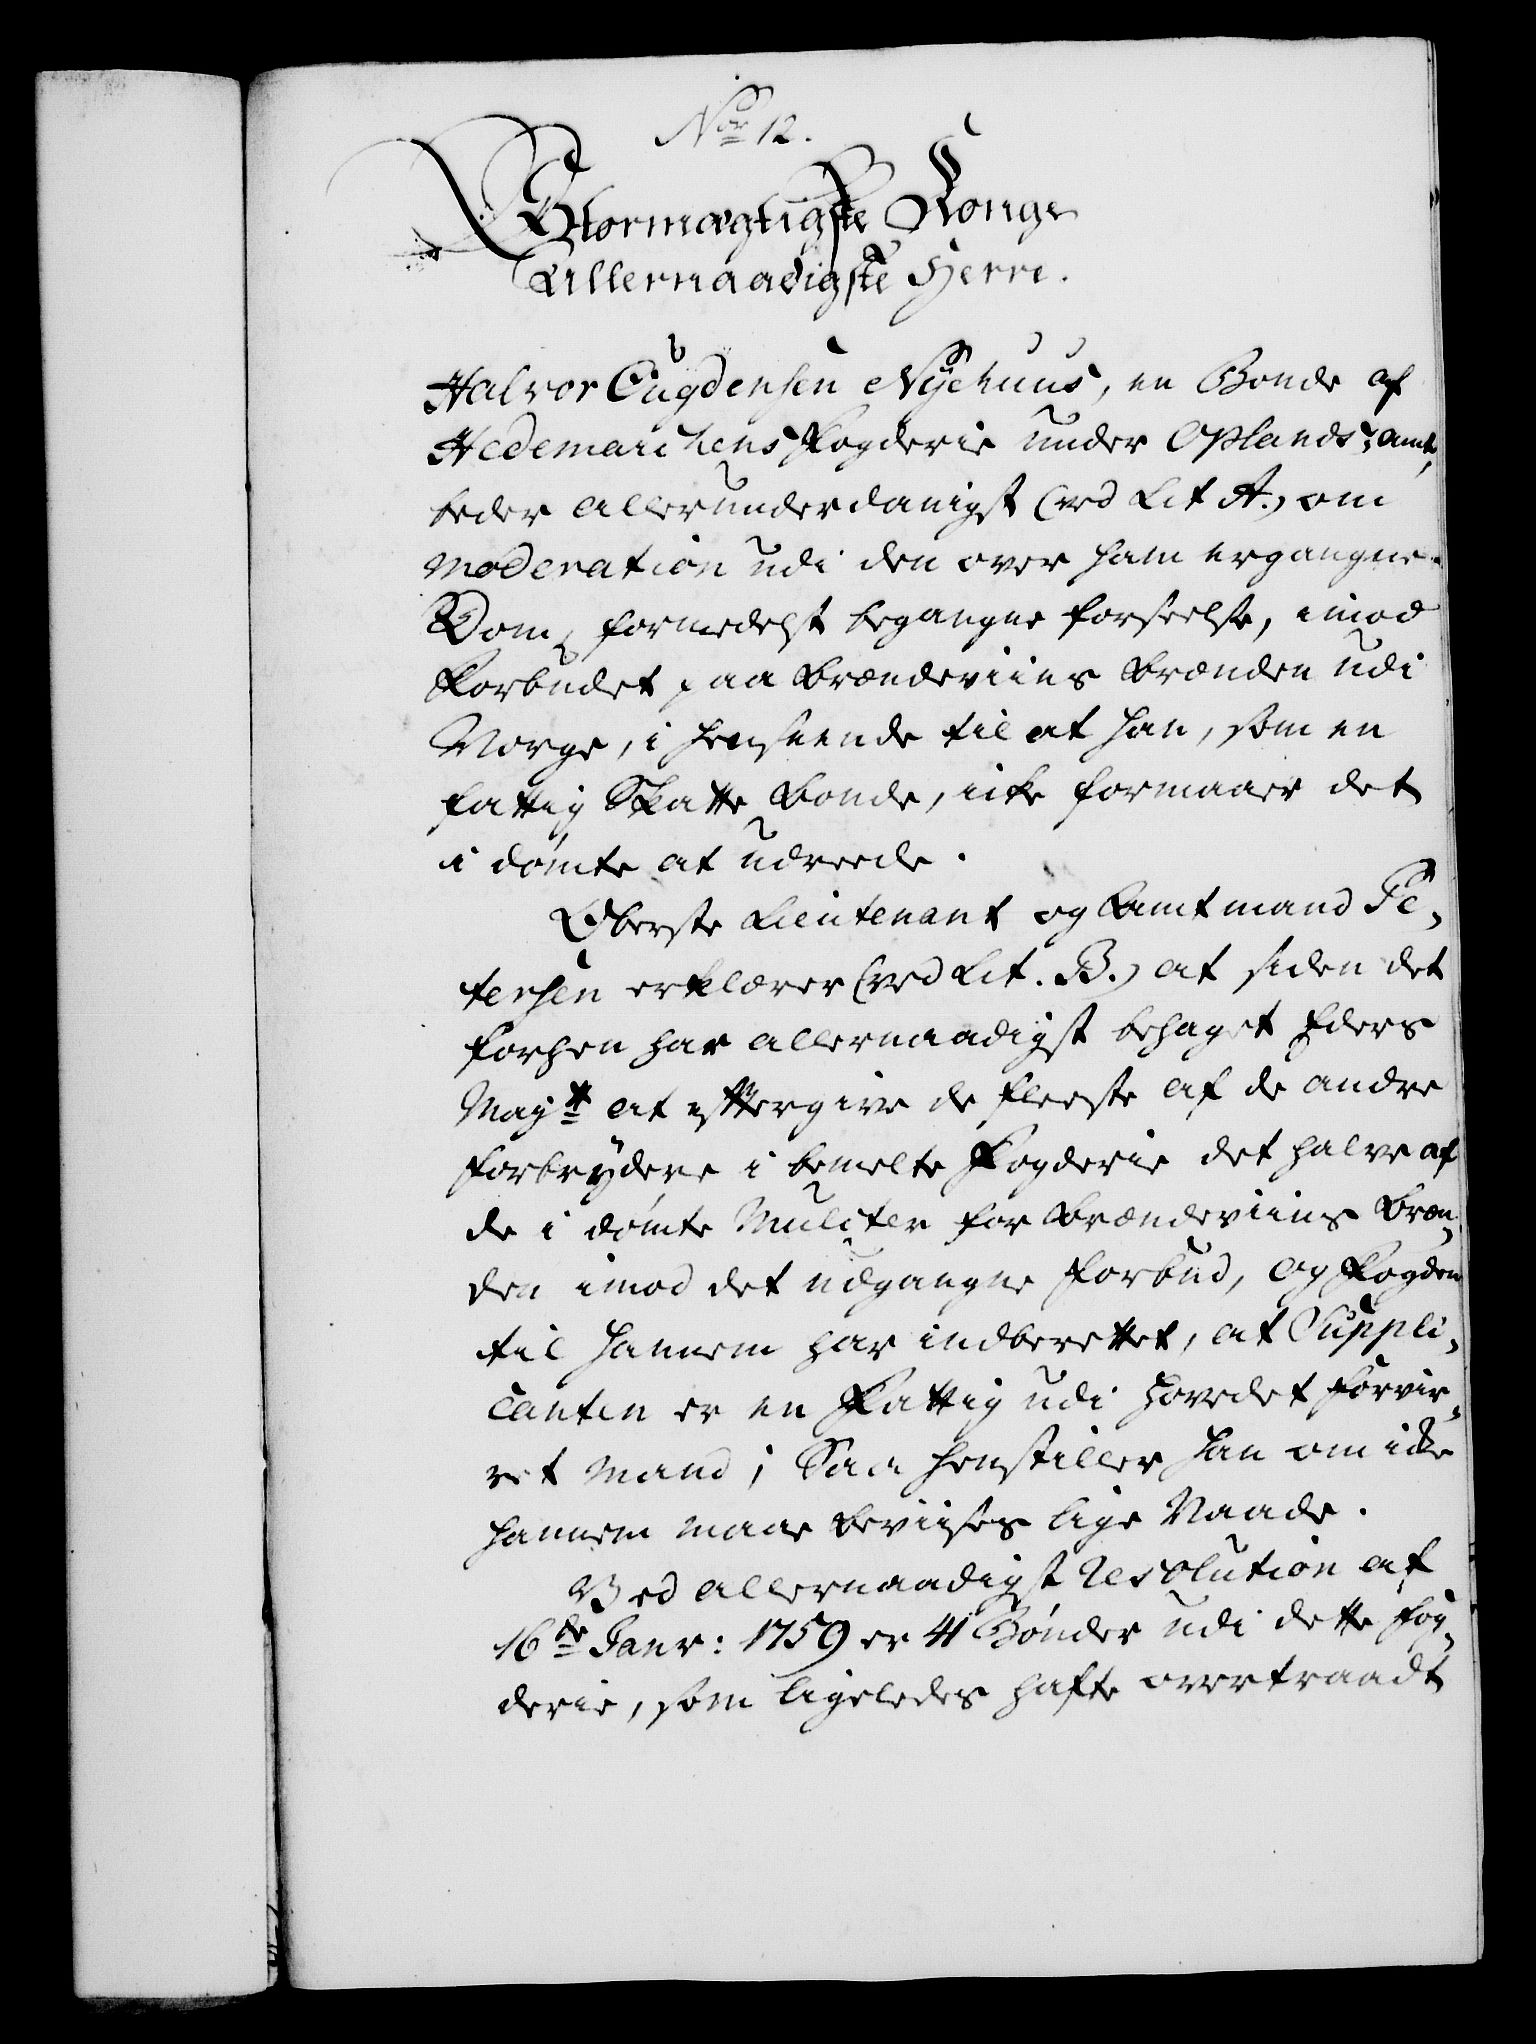 Nor 12.
Stormægtigste Konge
Allernaadigste Herre.
Halvor Eugdensen Nÿehuus, en Bonde af
Hedemarchens Fogderie under Oplands Amt,
beder allerunderdanigst (ved Lit A.) om
Moderation udi den over ham ergangne
Dom, formedelst begangne forseelse, imod
Forbudet paa Brændeviins Brænden udi
Norge, i henseende til at han, som en
fattig Skatte Bonde, icke formaaer det
i dømte at udreede.
Oberste Lieutenant og Amtmand Pe-
tersen erklærer (ved Lit. B.) at siden det
forhen har allernaadigst behaget Eders
Mayt at eftergive de fleeste af de andre
forbrydere i bemelte Fogderie det halve af
de i dømte Mulcter for Brændeviins Bræn-
den imod det udgangne Forbud, og Fogden
til hannem har indberettet, at Suppli-
canten er en Fattig udi Hovedet forvir-
ret Mand; Saa henstiller han om icke
hannem maae beviises lige Naade.
Ved allernaadigst Resolution af
16de Janr: 1759 er 41 Bønder udi dette Fog-
derie, som ligeledes hafte overtraadt